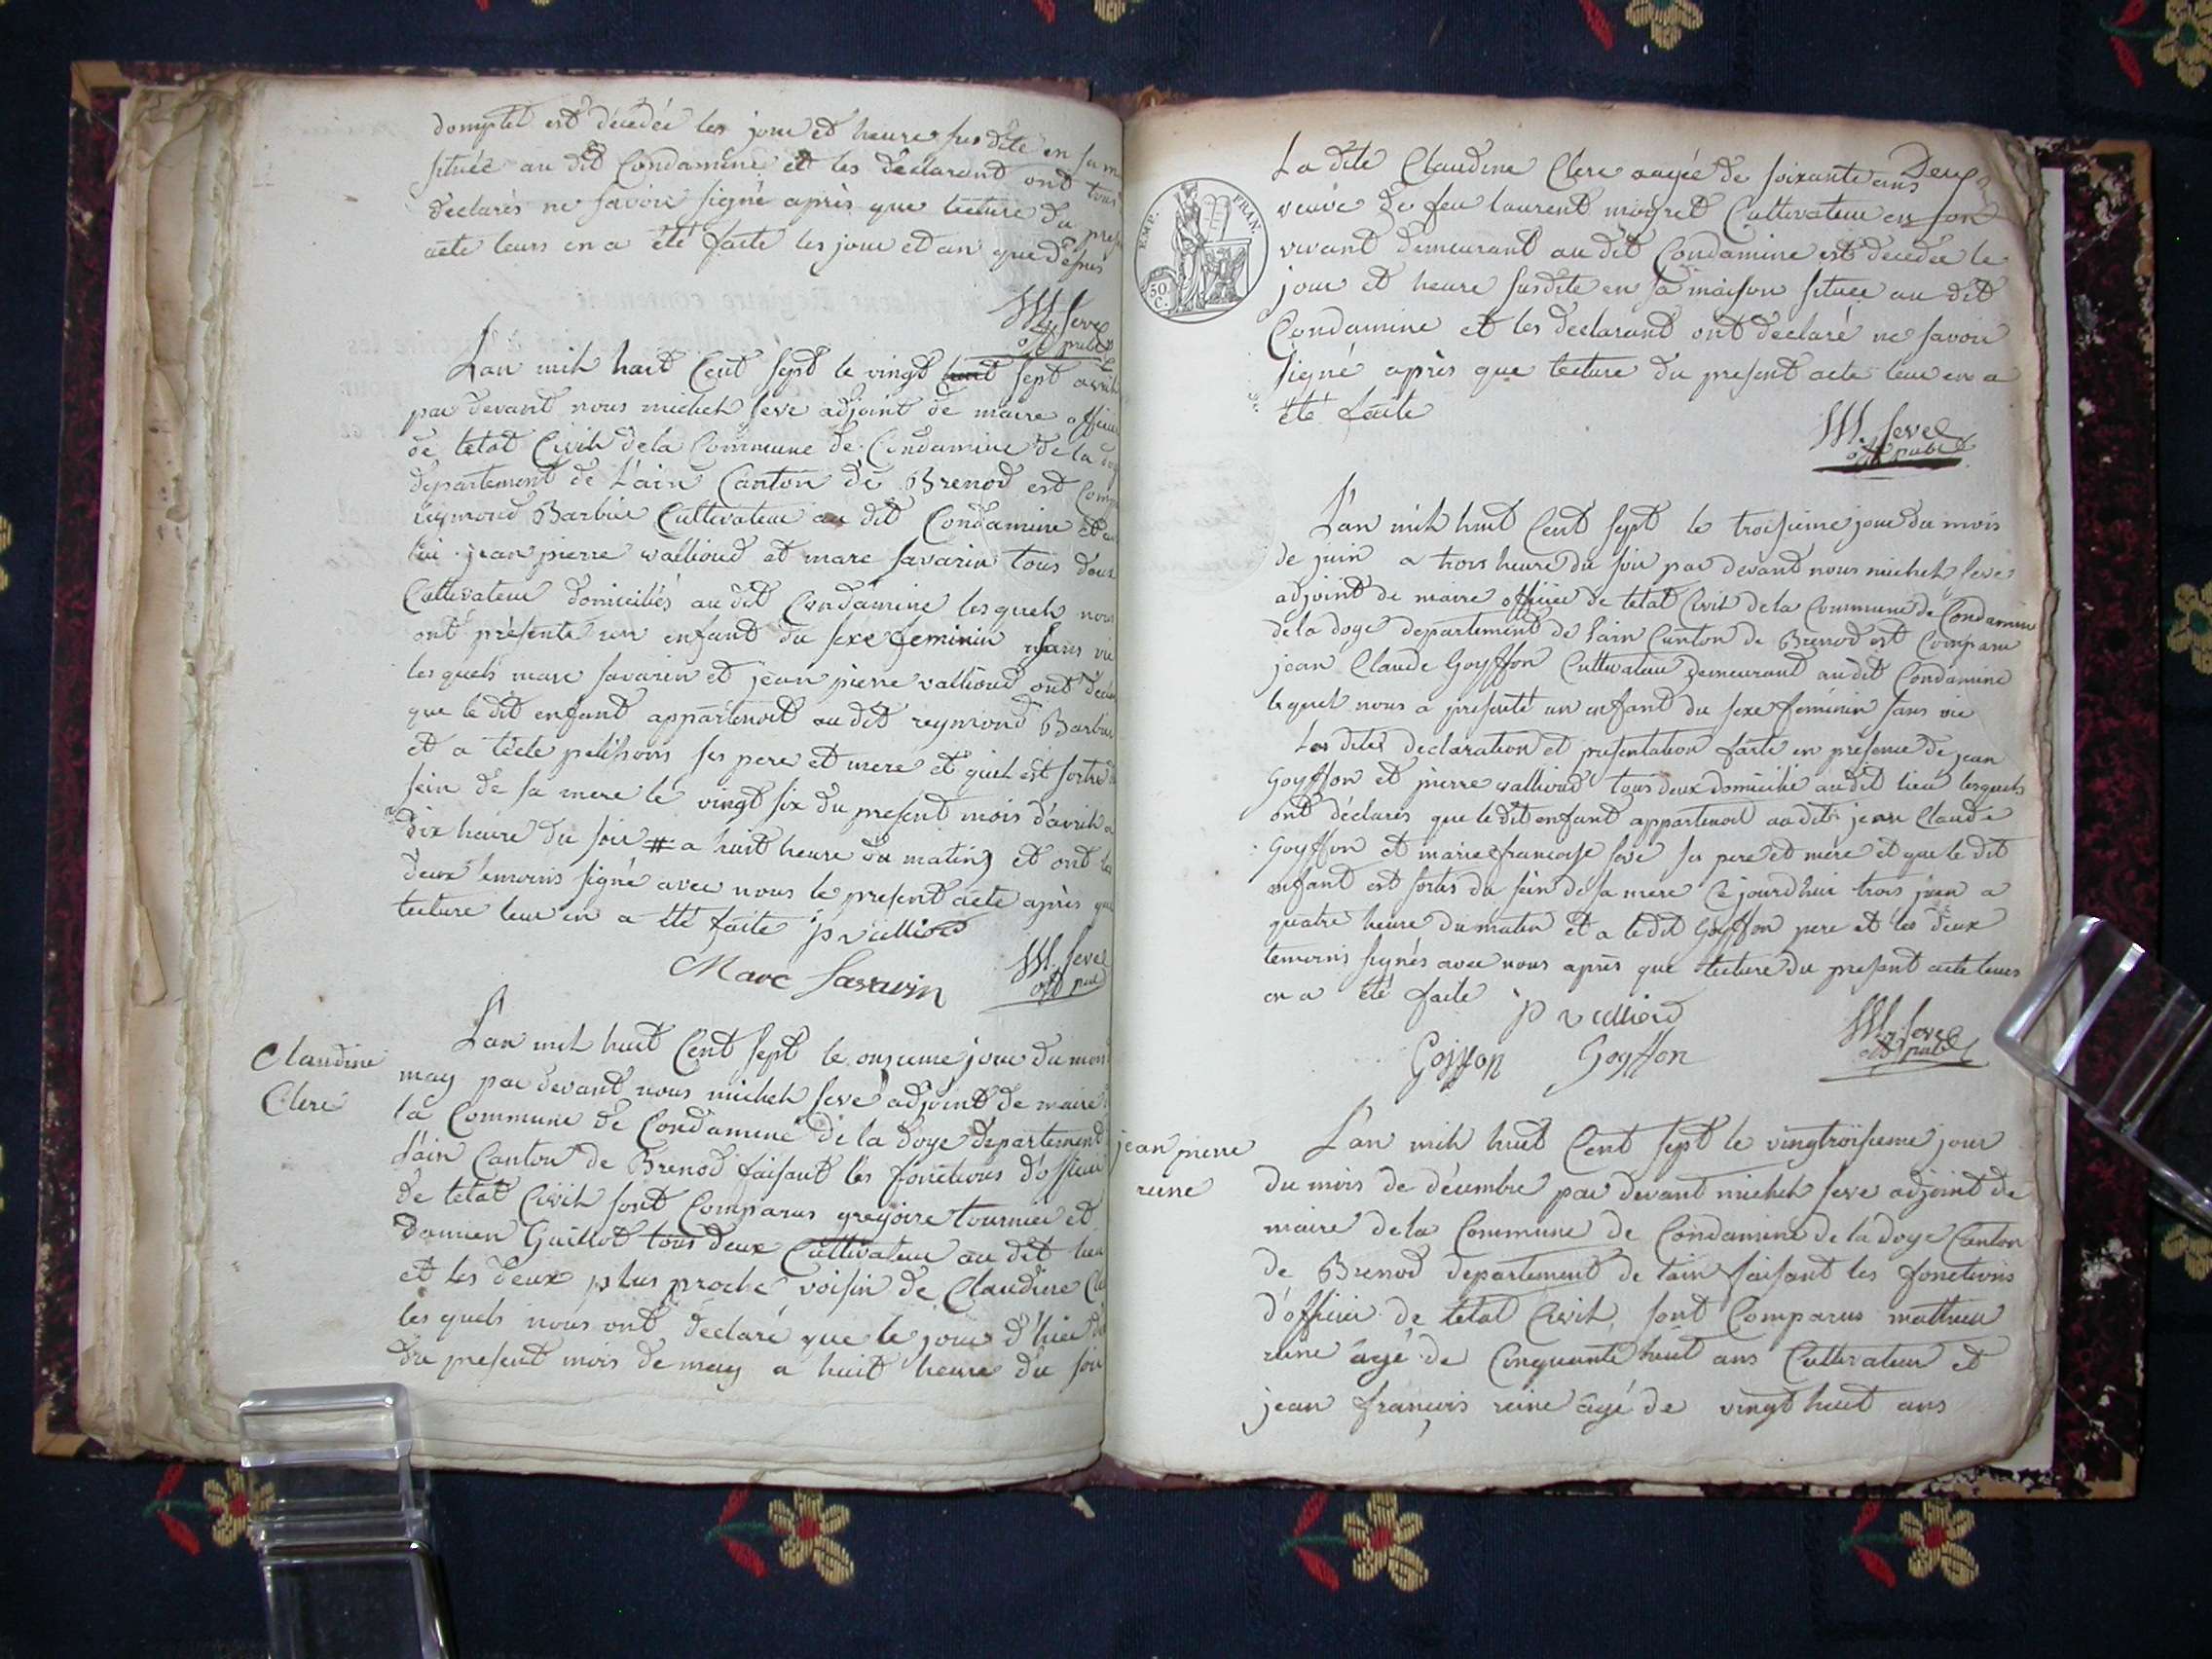 domptet est décédée les jour et heure susdite en sa m
située au dit Condamine et les declarant ont tous
declarés ne savoir signé après que lecture du prese
acte leurs en a été faite les jour et an que dessus
M. Seve
off. public
L'an mil huit Cent Sept le vingt huit Sept avril
par devant nous michel Seve adjoint de maire officier
de letat Civil de la Commune de Condamine de la doy
departement de L'ain Canton de Brenod est Comp
reymond Barbier Cultivateur au dit Condamine et
lui jean pierre wallioud et marc Savarin tous deux
Cultivateur domiciliés au dit Condamine lesquels nous
ont présenté un enfant du sexe feminin sans vie
lesquels marc Savarin et jean pierre vallioud ont décla
que le dit enfant appartenoit au dit reymond Barbier
et a tècle ses pere et mere et quil est sortis
sein de sa mere le vingt six du present mois d'avril a
dix heure du soir # a huit heure du matin) et ont les
deux temoins signé avec nous le present acte après que
lecture leur en a été faite p vallioud
Marc Savarin
M. Seve
off. pub
Claudine
Clerc
L'an mil huit Cent Sept le onzieme jour du mois
may par devant nous michel Seve adjoint de maire
la Commune de Condamine de la doye departement
L'ain Canton de Brenod faisant les fonctions d'officier
de letat Civil sont Comparus gregoire tournier et
damien Guillot tous deux Cultivateur au dit lieu
et les deux plus proche voisin de Claudine Cle
lesquels nous ont declaré que le jour d'hier dix
du present mois de may a huit heure du soir
Deux
EMP. FRAN.
50 C.
La dite Claudine Clerc aagée de soixante ans
veuve de feu laurent Cultivateur en son
vivant demeurant au dit Condamine est decedée le
jour et heure susdite en sa maison située au dit
Condamine et les declarant ont declaré ne savoir
signé après que lecture du present acte leur en a
été faite
M. Seve
off. public
L'an mil huit Cent Sept le troisieme jour du mois
de juin a trois heure du soir par devant nous michel Seve
adjoint de maire officier de letat Civil de la Commune de Condamine
de la doye departement de lain Canton de Brenod est Comparu
jean Claude Goyffon Cultivateur demeurant au dit Condamine
lequel nous a présenté un enfant du sexe féminin sans vie
Les dites declaration et presentation faite en présence de jean
Goyffon et pierre vallioud tous deux domicilié au dit lieu lesquels
ont déclarés que le dit enfant appartenoit au dit jean Claude
Goyffon et marie françoise Seve sa pere et mere et que le dit
enfant est sortis du sein de sa mere Cejourdhui trois juin a
quatre heure du matin et a ledit Goyffon pere et les deux
temoins signés avec nous après que lecture du present acte leurs
en a été faite p vallioud
Goyffon Goyffon
M. Seve
off. public
jean pierre
reine
L'an mil huit Cent Sept le vingtroisieme jour
du mois de décembre par devant michel Seve adjoint de
maire de la Commune de Condamine de la doye Canton
de Brenod departement de lain faisant les fonctions
d'officier de letat Civil, sont Comparus mathieu
reine âgé de Cinquante huit ans Cultivateur et
jean françois reine âgé de vingt huit ans